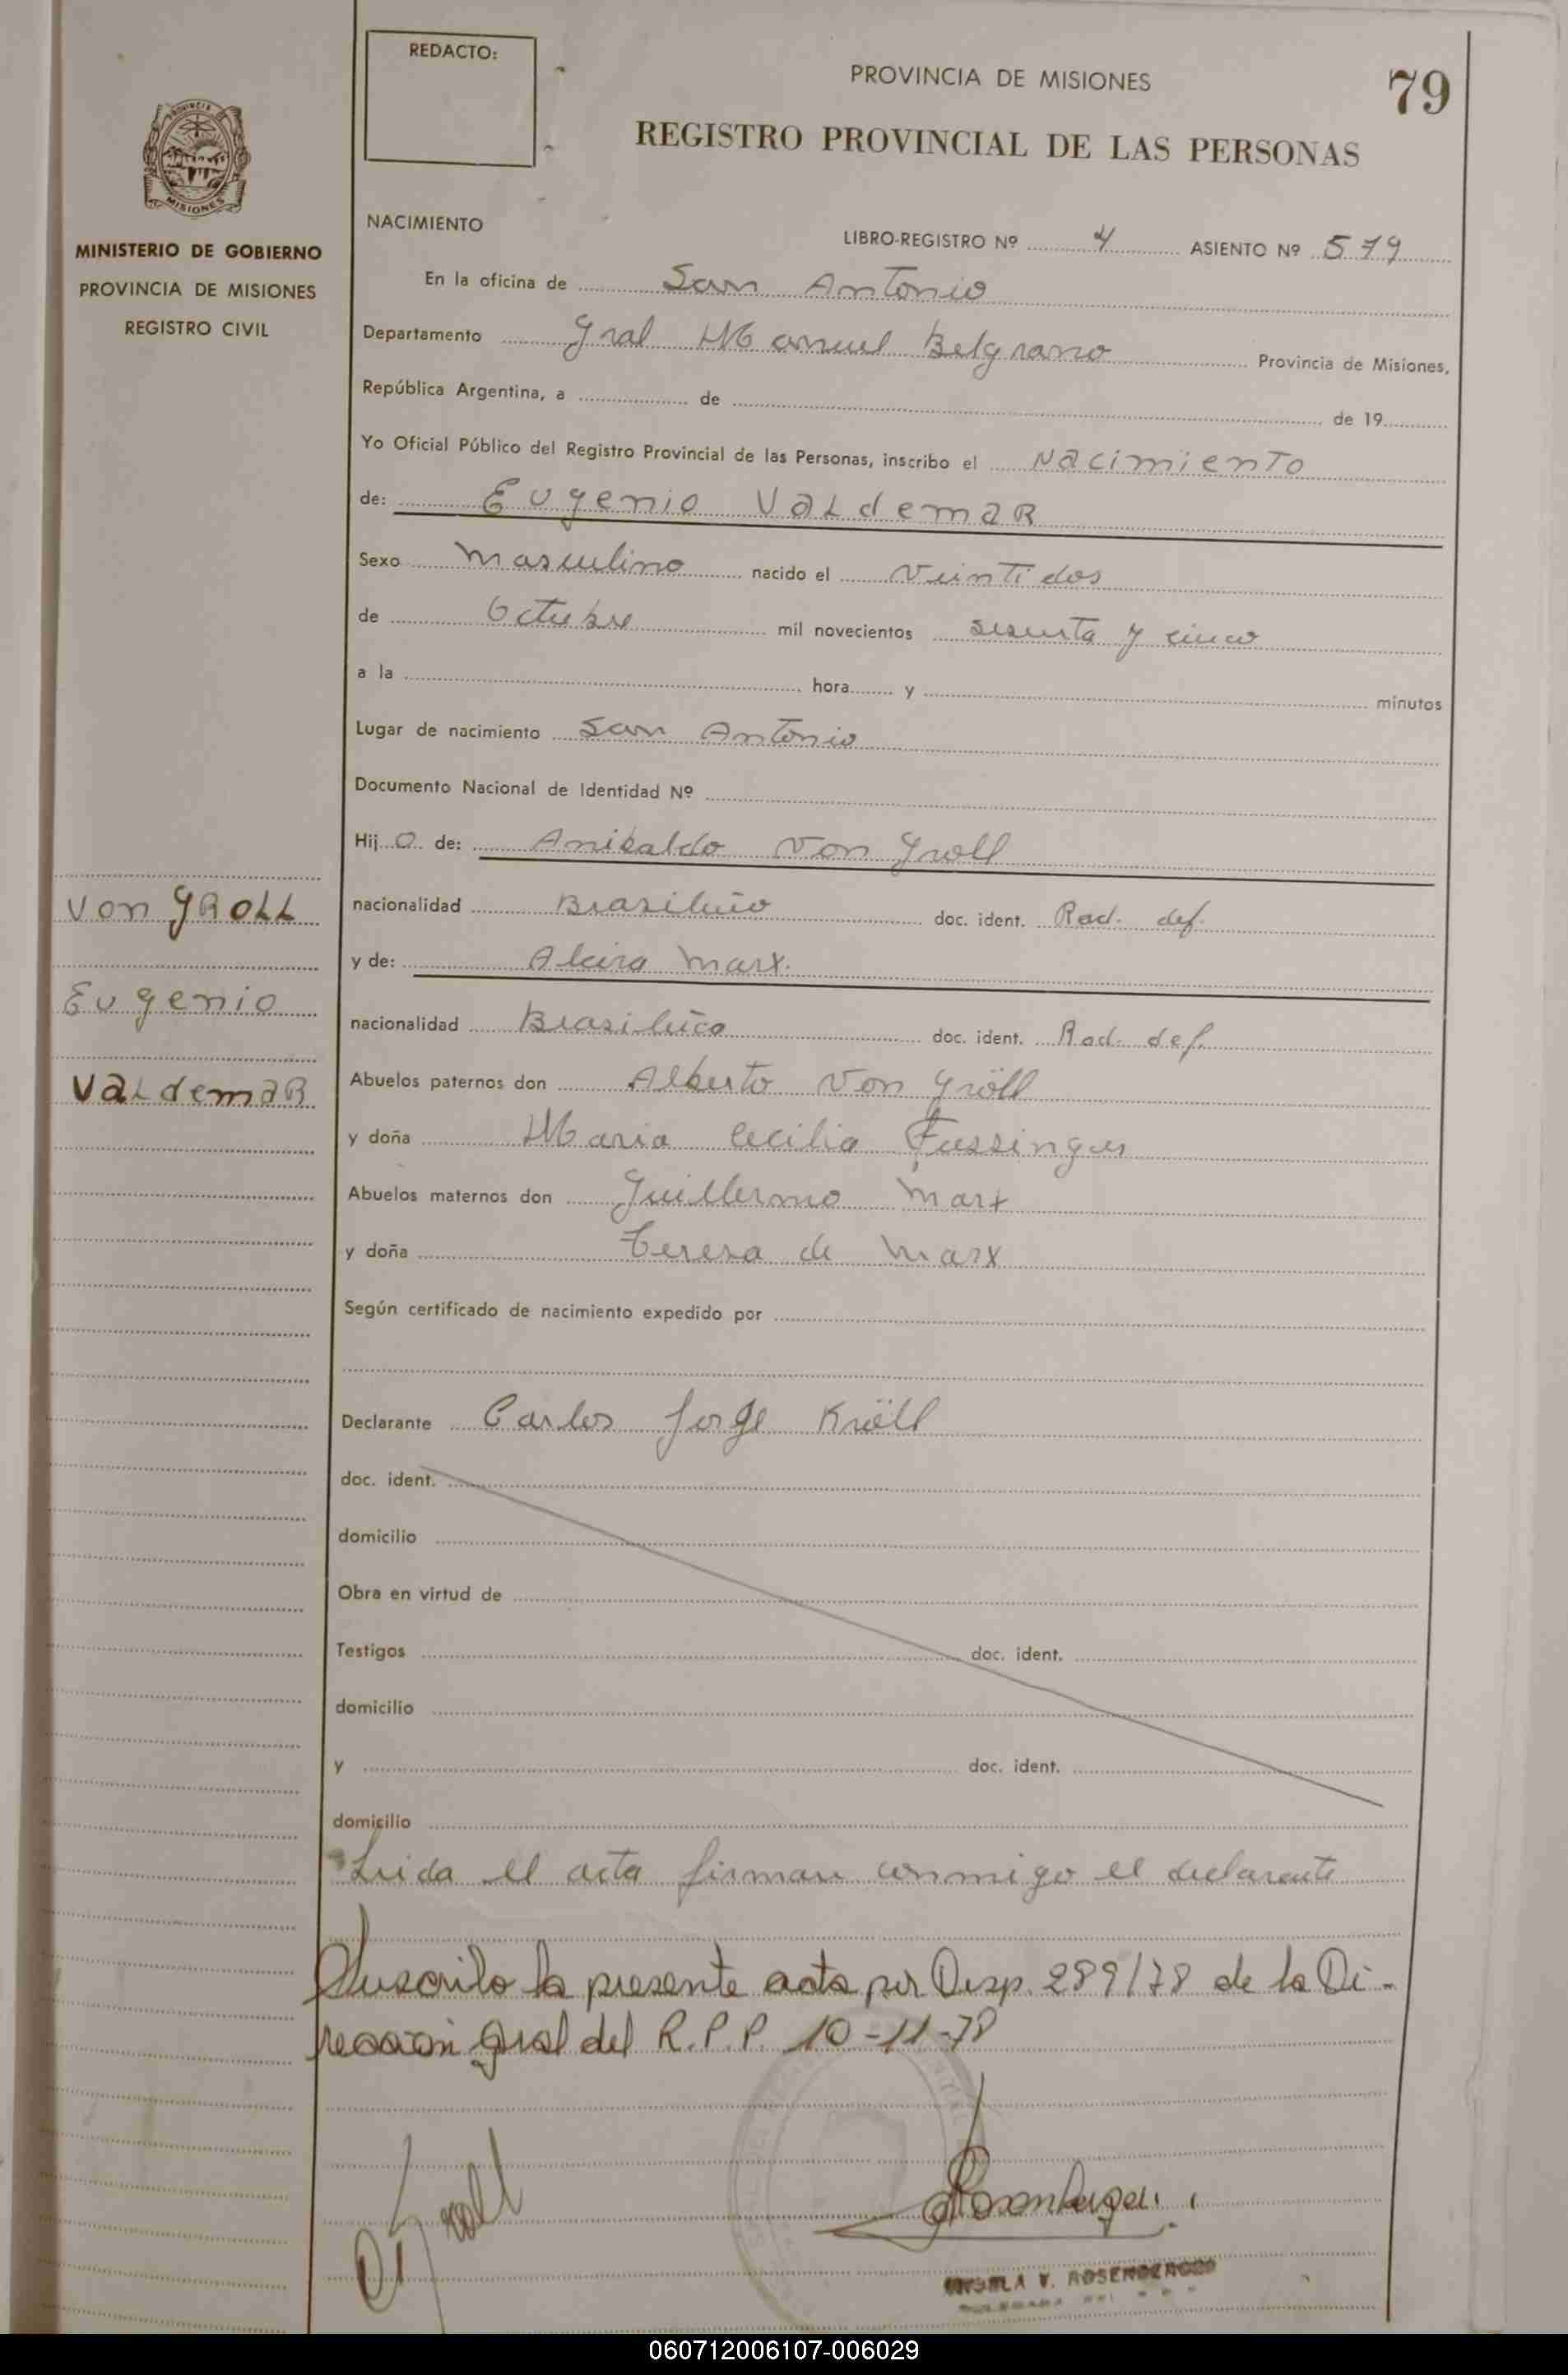 REDACTO:
PROVINCIA DE MISIONES
79
REGISTRO PROVINCIAL DE LAS PERSONAS
MISIONES
MINISTERIO DE GOBIERNO
PROVINCIA DE MISIONES
REGISTRO CIVIL
NACIMIENTO
LIBRO-REGISTRO Nº 4 ASIENTO Nº 579
En la oficina de San Antonio
Departamento Gral Manuel Belgrano Provincia de Misiones,
República Argentina, a de de 19
Yo Oficial Público del Registro Provincial de las Personas, inscribo el Nacimiento
de: Eugenio Valdemar
Sexo Masculino nacido el veintidos
de Octubre mil novecientos sesenta y cinco
a la hora y minutos
Lugar de nacimiento San Antonio
Documento Nacional de Identidad Nº
Hij o de: Anibaldo Von Groll
nacionalidad Brasileño doc. ident. Rad. def.
y de: Alcira Marx.
nacionalidad Brasileña doc. ident. Rad. def.
Abuelos paternos don Alberto Von Gröll
y doña Maria Cecilia Fussinger
Abuelos maternos don Guillermo Marx
y doña Teresa de Marx
Según certificado de nacimiento expedido por
Declarante Carlos Jorge Kröll
doc. ident.
domicilio
Obra en virtud de
Testigos doc. ident.
domicilio
y doc. ident.
domicilio
Leida el acta firman conmigo el declarante
Suscrito la presente acta por Disp. 289/78 de la Di-
rección Gral del R.P.P. 10-11-78
Von GROLL
Eugenio
Valdemar
V. ROSENBERGER
060712006107-006029